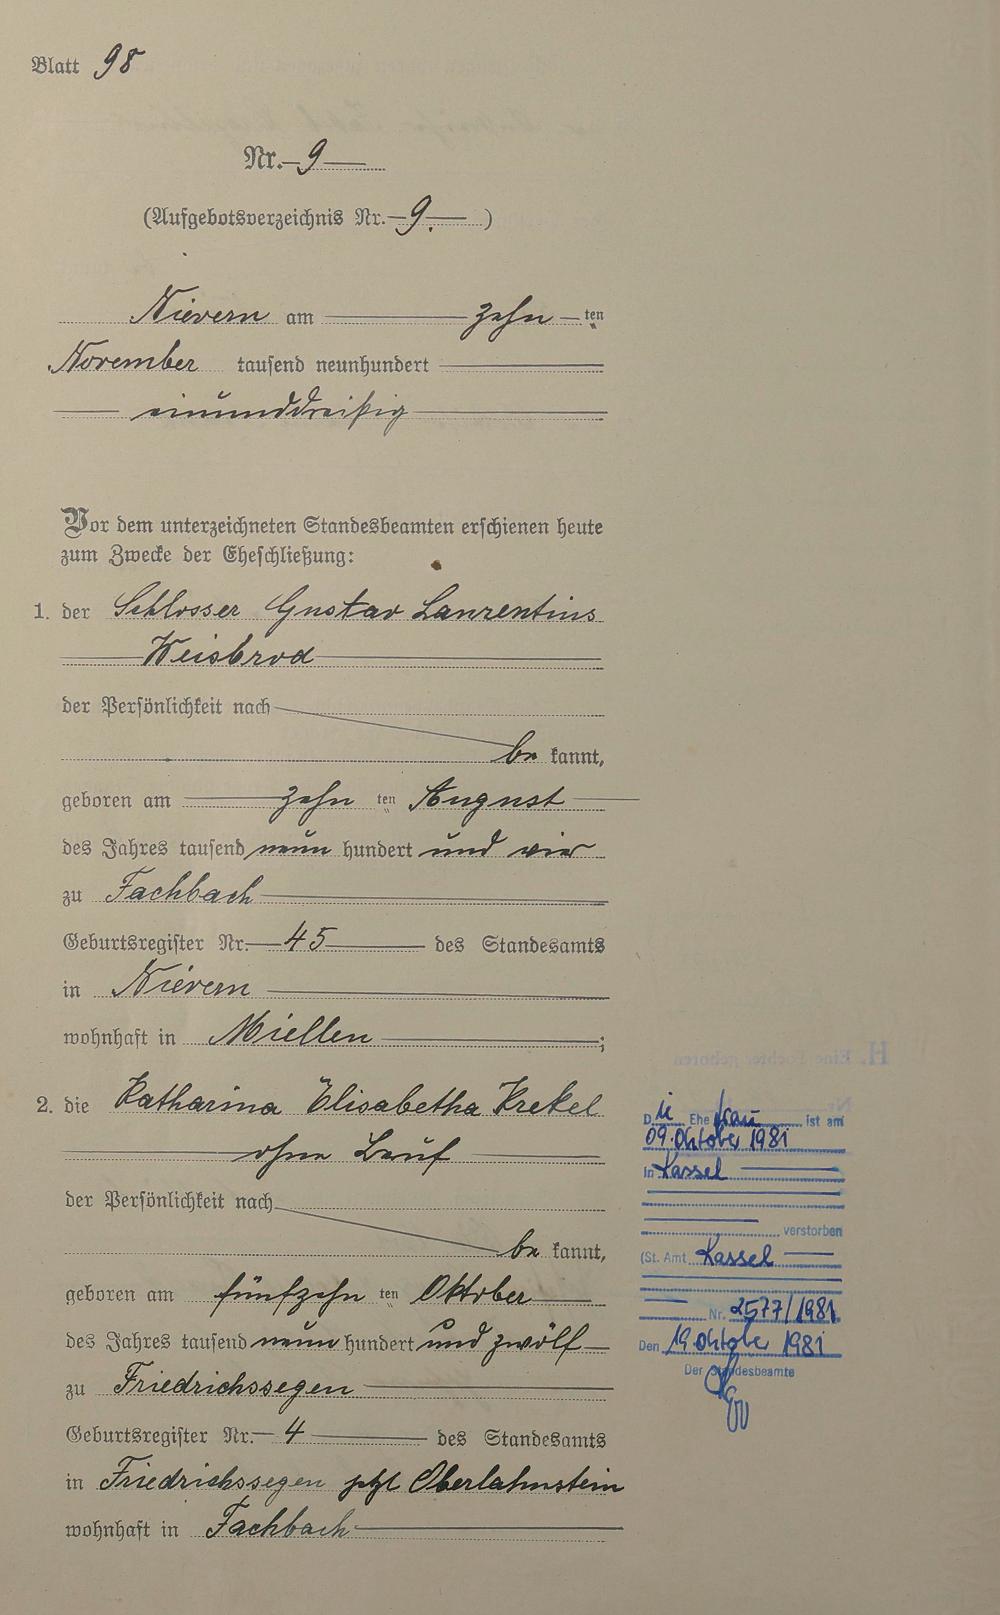 Blatt 98
Nr. 9
(Aufgebotsverzeichnis Nr. 9.)
Nievern am zehn ten
November tausend neunhundert
einunddreißig
Vor dem unterzeichneten Standesbeamten erschienen heute
zum Zwecke der Eheschließung:
1. der Schlosser Gustav Laurentius
Weisbrod
der Persönlichkeit nach
be kannt,
geboren am zehn ten August
des Jahres tausend neun hundert und vier
zu Fachbach
Geburtsregister Nr. 45 des Standesamts
in Nievern
wohnhaft in Miellen ;
2. die Katharina Elisabetha Krekel
ohne Beruf
der Persönlichkeit nach
be kannt,
geboren am fünfzehn ten Oktober
des Jahres tausend neun hundert und zwölf
zu Friedrichssegen
Geburtsregister Nr. 4 des Standesamts
in Friedrichssegen jetzt Oberlahnstein
wohnhaft in Fachbach
Die Ehefrau ist am
09. Oktober 1981
in Kassel
verstorben
(St. Amt Kassel
Nr. 2577/1981
Den 19. Oktober 1981
Der Standesbeamte